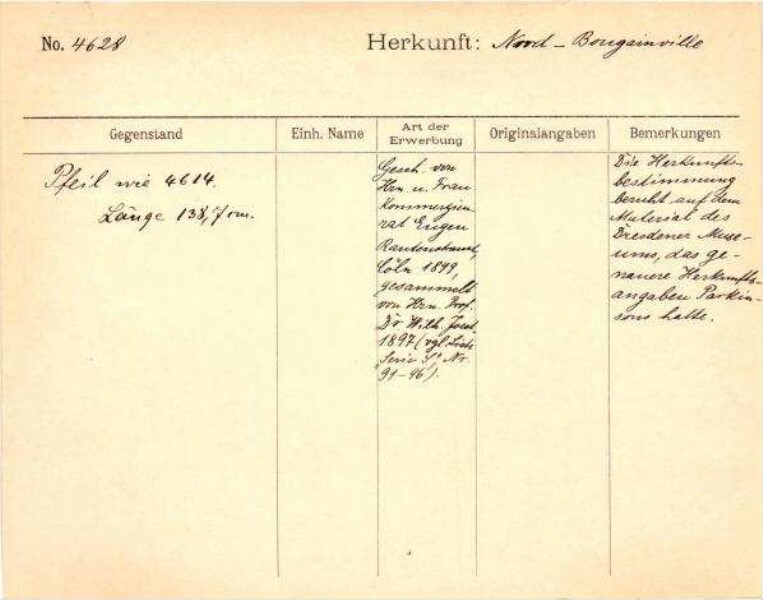 No. 4628
Herkunft: Nord – Bougainville
Gegenstand
Einh. Name
Art der
Erwerbung
Originalangaben
Bemerkungen
Pfeil wie 4614.
Länge 138,7 cm.
Gesch. von
Hrn. u. Frau
Kommerzien-
rat Eugen
Rautenstrauch,
Cöln 1899,
gesammelt
von Hrn. Prof.
Dr. Wilh. Joest
1897 (vgl. Liste
"Serie S", Nr.
91–96).
Die Herkunfts-
bestimmung
beruht auf dem
Material des
Dresdener Muse-
ums, das ge-
nauere Herkunfts-
angaben Parkin-
sons hatte.